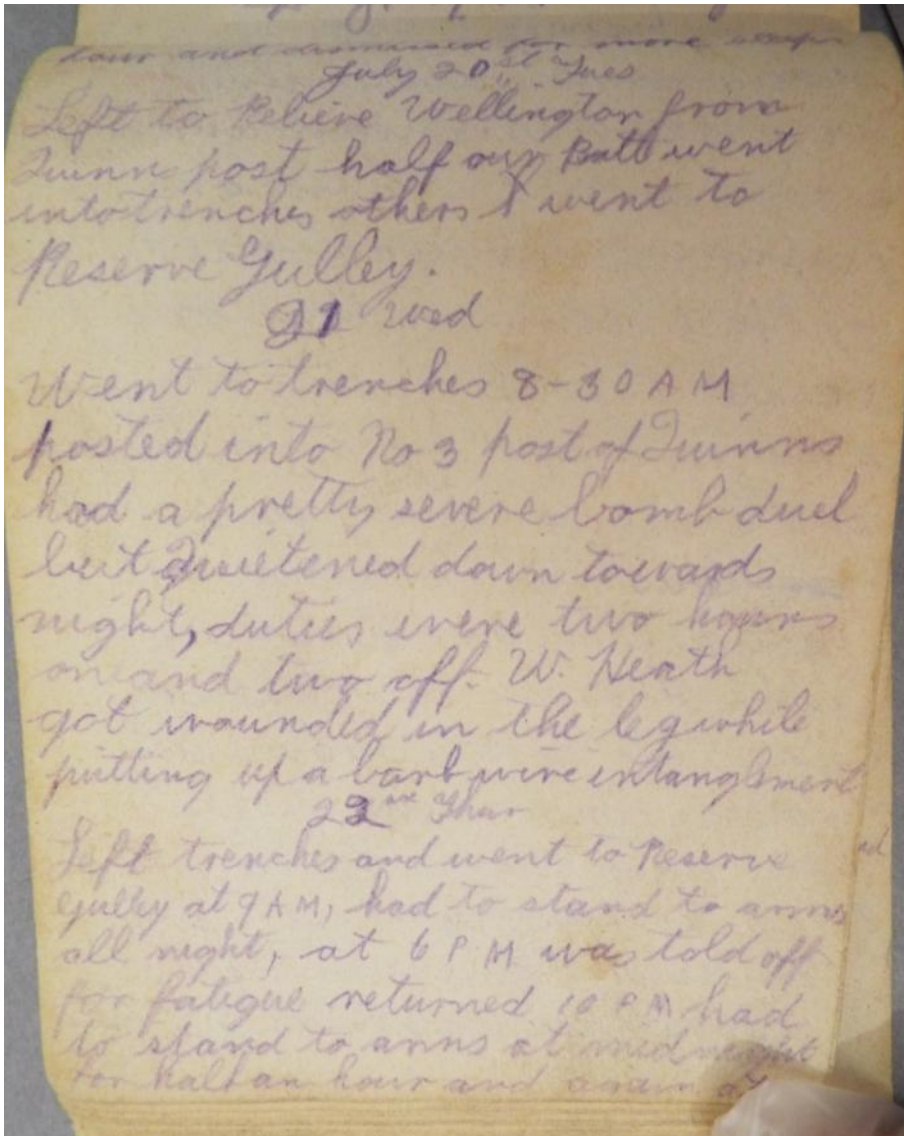 hour and dismissed for more sleep
July 20th Tues
Left to Relieve Wellington from
Quinn post half our Batt went
into trenches others & I went to
Reserve Gulley.
21 Wed
Went to trenches 8-30 AM
posted into No 3 post of Quinns
had a pretty severe bomb duel
but Quietened down towards
night, duties were two hours
on and two off. W. Heath
got wounded in the leg while
putting up a barb wire entanglment
22 Thur
Left trenches and went to Reserve
gulley at 9 AM, had to stand to arms
all night, at 6 PM was told off
for fatigue returned 10 PM had
to stand to arms at midnight
for half an hour and again at